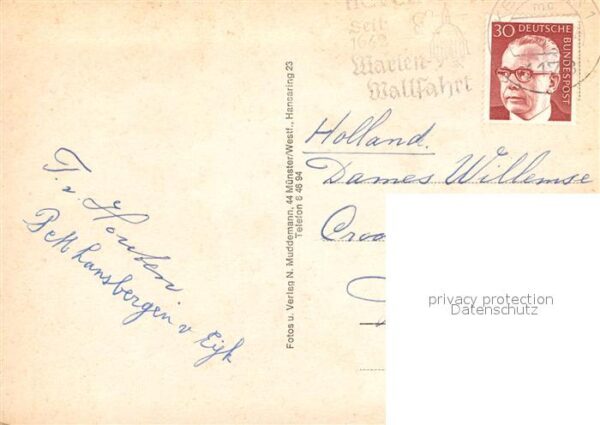 Seit
1642
Marien-
Wallfahrt
30 DEUTSCHE
BUNDESPOST
Holland.
Dames Willemse
Croo
T. v. Houten
Lansbergen v Eijk
Fotos u. Verlag N. Muddemann, 44 Münster/Westf., Hansaring 23
Telefon 6 46 94
privacy protection
Datenschutz